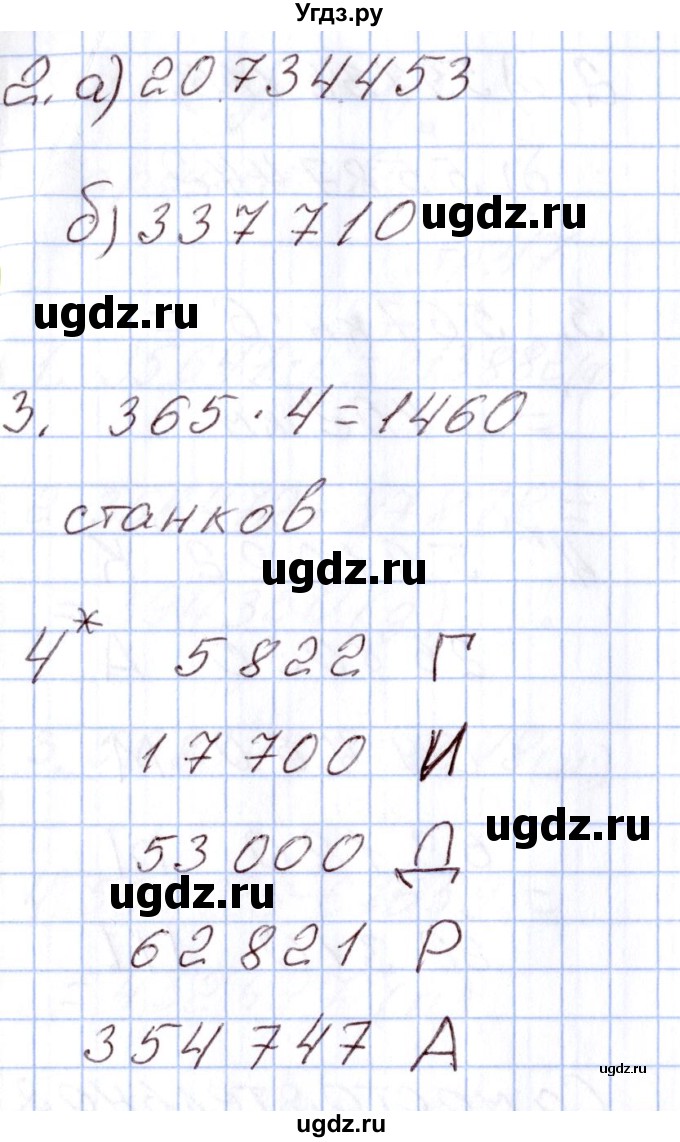 Угдз.ру
2. а) 20734453
б) 337 710 ugdz.ru
ugdz.ru
3. 365 · 4 = 1460
станков
ugdz.ru
4* 5822 Г
17 700 И
ugdz.ru
53 000 Д
ugdz.ru
62 821 Р
354 747 А
ugdz.ru
ugdz.ru